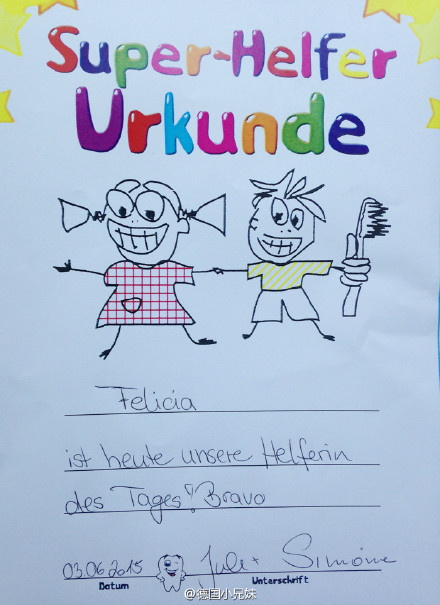 Super-Helfer
Urkunde
Felicia
ist heute unsere Helferin
des Tages! Bravo
03.06.2015 Juli + Simone
Datum Unterschrift
@德国小兄妹